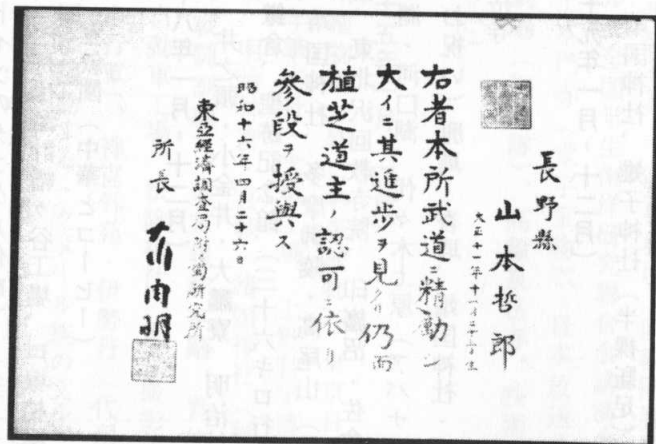 長野縣
山本哲郎
大正十一年十一月三十日生
右者本所武道ニ精勤シ
大イニ其進歩ヲ見タリ仍而
植芝道主ノ認可ニ依リ
參段ヲ授與ス
昭和十六年四月二十六日
東亞經濟調査局附屬研究所
所長 大川周明